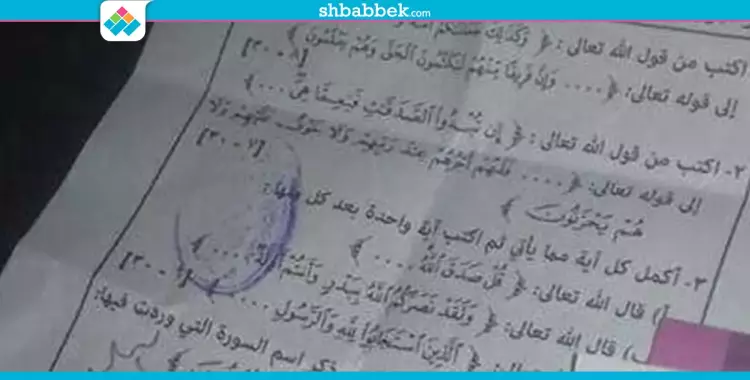 shbabbek.com
اكتب من قول الله تعالى: ﴿ وَكَذَلِكَ
إلى قوله تعالى: ﴿ .... وَإِنَّ فَرِيقًا مِّنْهُمْ لَيَكْتُمُونَ الْحَقَّ وَهُمْ يَعْلَمُونَ ﴾
٢- اكتب من قول الله تعالى: ﴿ إِن تُبْدُوا الصَّدَقَتِ فَنِعِمَّا هِيَ ... ﴾
إلى قوله تعالى: ﴿ .... فَلَهُمْ أَجْرُهُمْ عِندَ رَبِّهِمْ وَلَا خَوْفٌ عَلَيْهِمْ وَلَا
هُمْ يَحْزَنُونَ ﴾
٣- أكمل كل آية مما يأتي ثم اكتب آية واحدة بعد كل منها:
أ) قال الله تعالى: ﴿ قُلْ صَدَقَ اللَّهُ .... ﴾
ب) قال الله تعالى: ﴿ وَلَقَدْ نَصَرَكُمُ اللَّهُ بِبَدْرٍ وَأَنتُمْ أَذِلَّةٌ .... ﴾
﴿ الَّذِينَ اسْتَجَابُوا لِلَّهِ وَالرَّسُولِ .... ﴾
اسم السورة التي وردت فيها: